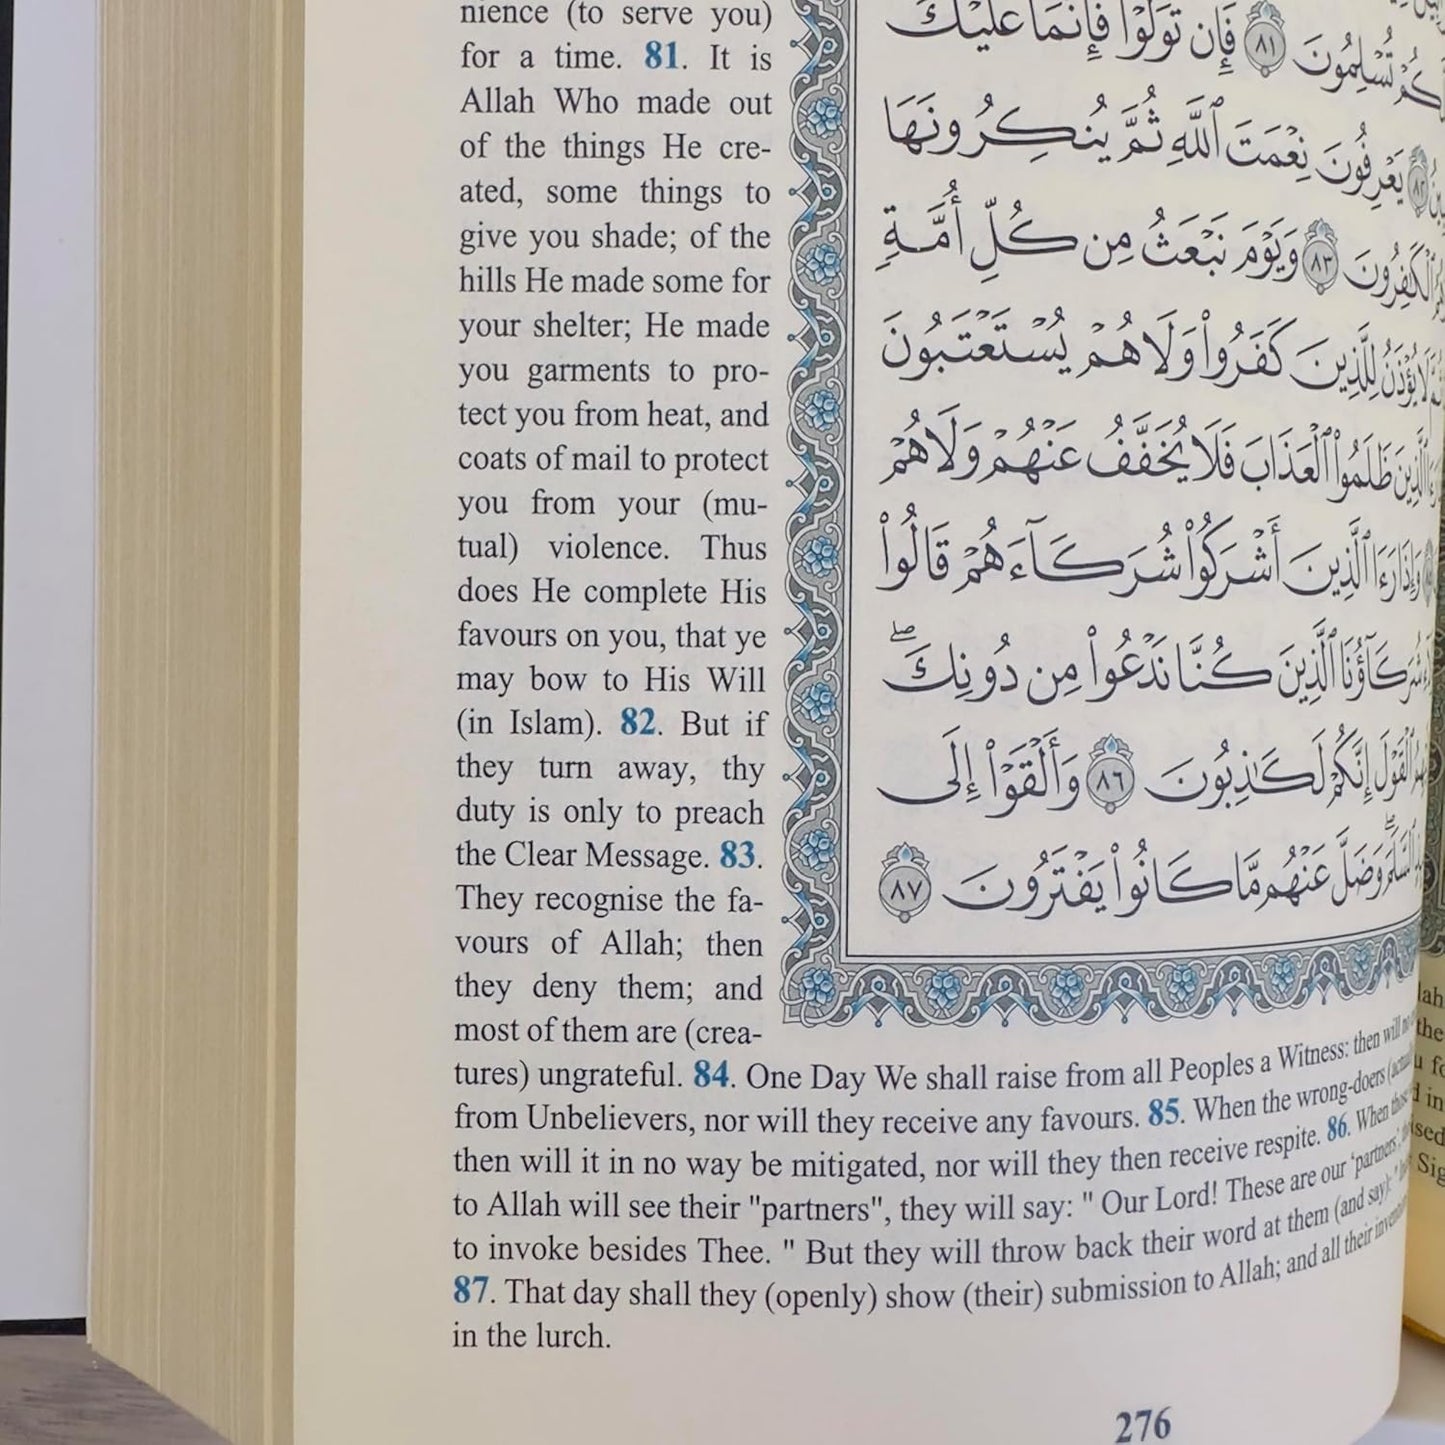 nience (to serve you)
for a time. 81. It is
Allah Who made out
of the things He cre-
ated, some things to
give you shade; of the
hills He made some for
your shelter; He made
you garments to pro-
tect you from heat, and
coats of mail to protect
you from your (mu-
tual) violence. Thus
does He complete His
favours on you, that ye
may bow to His Will
(in Islam). 82. But if
they turn away, thy
duty is only to preach
the Clear Message. 83.
They recognise the fa-
vours of Allah; then
they deny them; and
most of them are (crea-
tures) ungrateful. 84. One Day We shall raise from all Peoples a Witness: then will no
from Unbelievers, nor will they receive any favours. 85. When the wrong-doers
then will it in no way be mitigated, nor will they then receive respite. 86. When
to Allah will see their "partners", they will say: " Our Lord! These are our 'partners',
to invoke besides Thee. " But they will throw back their word at them (and say): "
87. That day shall they (openly) show (their) submission to Allah; and all their
in the lurch.
تُسْلِمُونَ ٨١ فَإِن تَوَلَّوْا۟ فَإِنَّمَا عَلَيْكَ
٨٢ يَعْرِفُونَ نِعْمَتَ ٱللَّهِ ثُمَّ يُنكِرُونَهَا
ٱلْكَٰفِرُونَ ٨٣ وَيَوْمَ نَبْعَثُ مِن كُلِّ أُمَّةٍ
لَا يُؤْذَنُ لِلَّذِينَ كَفَرُوا۟ وَلَا هُمْ يُسْتَعْتَبُونَ
ٱلَّذِينَ ظَلَمُوا۟ ٱلْعَذَابَ فَلَا يُخَفَّفُ عَنْهُمْ وَلَا هُمْ
وَإِذَا رَءَا ٱلَّذِينَ أَشْرَكُوا۟ شُرَكَآءَهُمْ قَالُوا۟
شُرَكَآؤُنَا ٱلَّذِينَ كُنَّا نَدْعُوا۟ مِن دُونِكَ ۖ
ٱلْقَوْلَ إِنَّكُمْ لَكَٰذِبُونَ ٨٦ وَأَلْقَوْا۟ إِلَى
ٱلسَّلَمَ ۖ وَضَلَّ عَنْهُم مَّا كَانُوا۟ يَفْتَرُونَ ٨٧
276